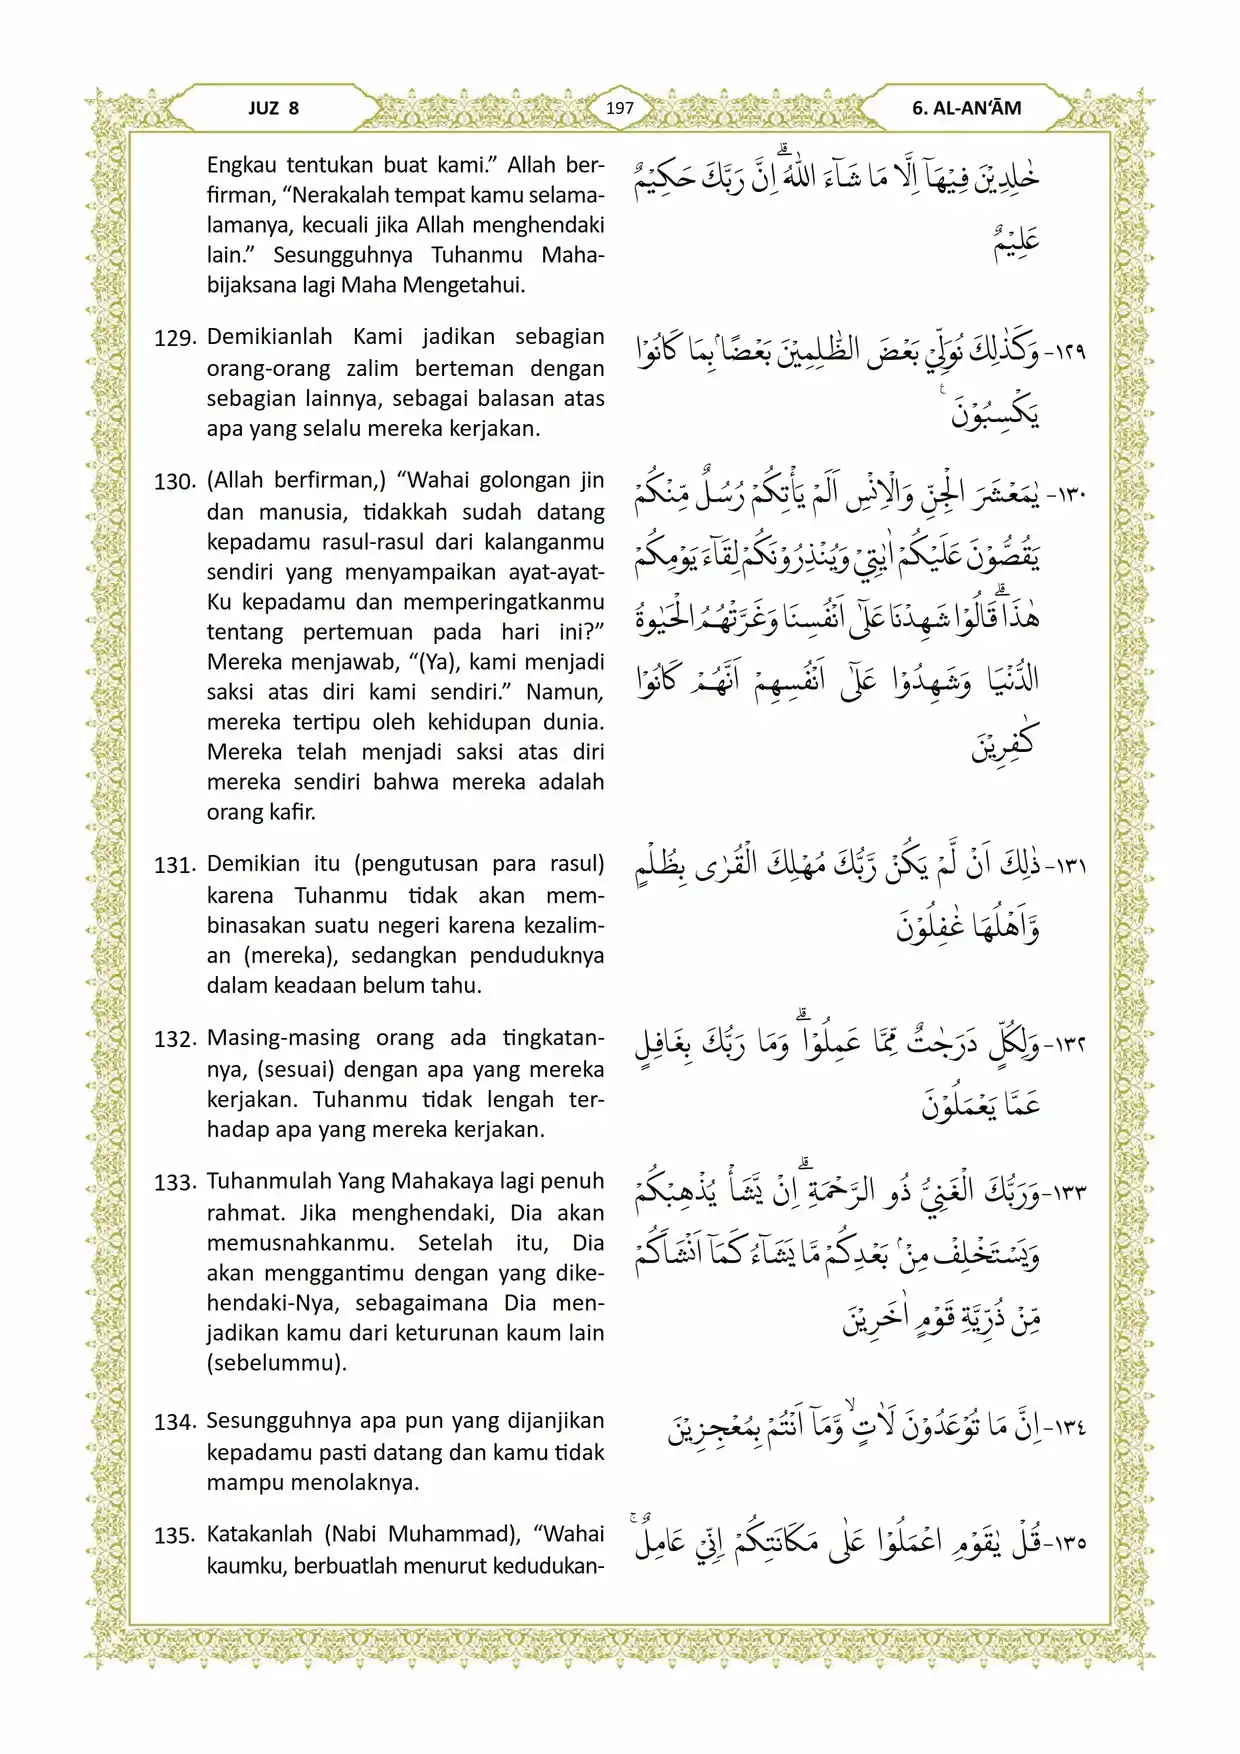 JUZ 8
197
6. AL-AN‘ĀM
Engkau tentukan buat kami.” Allah ber-
firman, “Nerakalah tempat kamu selama-
lamanya, kecuali jika Allah menghendaki
lain.” Sesungguhnya Tuhanmu Maha-
bijaksana lagi Maha Mengetahui.
خٰلِدِيْنَ فِيْهَآ اِلَّا مَا شَاۤءَ اللّٰهُ ۗاِنَّ رَبَّكَ حَكِيْمٌ
عَلِيْمٌ
129. Demikianlah Kami jadikan sebagian
orang-orang zalim berteman dengan
sebagian lainnya, sebagai balasan atas
apa yang selalu mereka kerjakan.
١٢٩- وَكَذٰلِكَ نُوَلِّيْ بَعْضَ الظّٰلِمِيْنَ بَعْضًاۢ بِمَا كَانُوْا
يَكْسِبُوْنَ ࣖ
130. (Allah berfirman,) “Wahai golongan jin
dan manusia, tidakkah sudah datang
kepadamu rasul-rasul dari kalanganmu
sendiri yang menyampaikan ayat-ayat-
Ku kepadamu dan memperingatkanmu
tentang pertemuan pada hari ini?”
Mereka menjawab, “(Ya), kami menjadi
saksi atas diri kami sendiri.” Namun,
mereka tertipu oleh kehidupan dunia.
Mereka telah menjadi saksi atas diri
mereka sendiri bahwa mereka adalah
orang kafir.
١٣٠- يٰمَعْشَرَ الْجِنِّ وَالْاِنْسِ اَلَمْ يَأْتِكُمْ رُسُلٌ مِّنْكُمْ
يَقُصُّوْنَ عَلَيْكُمْ اٰيٰتِيْ وَيُنْذِرُوْنَكُمْ لِقَاۤءَ يَوْمِكُمْ
هٰذَاۗ قَالُوْا شَهِدْنَا عَلٰٓى اَنْفُسِنَا وَغَرَّتْهُمُ الْحَيٰوةُ
الدُّنْيَا وَشَهِدُوْا عَلٰٓى اَنْفُسِهِمْ اَنَّهُمْ كَانُوْا
كٰفِرِيْنَ
131. Demikian itu (pengutusan para rasul)
karena Tuhanmu tidak akan mem-
binasakan suatu negeri karena kezalim-
an (mereka), sedangkan penduduknya
dalam keadaan belum tahu.
١٣١- ذٰلِكَ اَنْ لَّمْ يَكُنْ رَّبُّكَ مُهْلِكَ الْقُرٰى بِظُلْمٍ
وَّاَهْلُهَا غٰفِلُوْنَ
132. Masing-masing orang ada tingkatan-
nya, (sesuai) dengan apa yang mereka
kerjakan. Tuhanmu tidak lengah ter-
hadap apa yang mereka kerjakan.
١٣٢- وَلِكُلٍّ دَرَجٰتٌ مِّمَّا عَمِلُوْاۗ وَمَا رَبُّكَ بِغَافِلٍ
عَمَّا يَعْمَلُوْنَ
133. Tuhanmulah Yang Mahakaya lagi penuh
rahmat. Jika menghendaki, Dia akan
memusnahkanmu. Setelah itu, Dia
akan menggantimu dengan yang dike-
hendaki-Nya, sebagaimana Dia men-
jadikan kamu dari keturunan kaum lain
(sebelummu).
١٣٣- وَرَبُّكَ الْغَنِيُّ ذُو الرَّحْمَةِ ۗاِنْ يَّشَأْ يُذْهِبْكُمْ
وَيَسْتَخْلِفْ مِنْۢ بَعْدِكُمْ مَّا يَشَاۤءُ كَمَآ اَنْشَاَكُمْ
مِّنْ ذُرِّيَّةِ قَوْمٍ اٰخَرِيْنَ
134. Sesungguhnya apa pun yang dijanjikan
kepadamu pasti datang dan kamu tidak
mampu menolaknya.
١٣٤- اِنَّ مَا تُوْعَدُوْنَ لَاٰتٍۙ وَّمَآ اَنْتُمْ بِمُعْجِزِيْنَ
135. Katakanlah (Nabi Muhammad), “Wahai
kaumku, berbuatlah menurut kedudukan-
١٣٥- قُلْ يٰقَوْمِ اعْمَلُوْا عَلٰى مَكَانَتِكُمْ اِنِّيْ عَامِلٌۚ